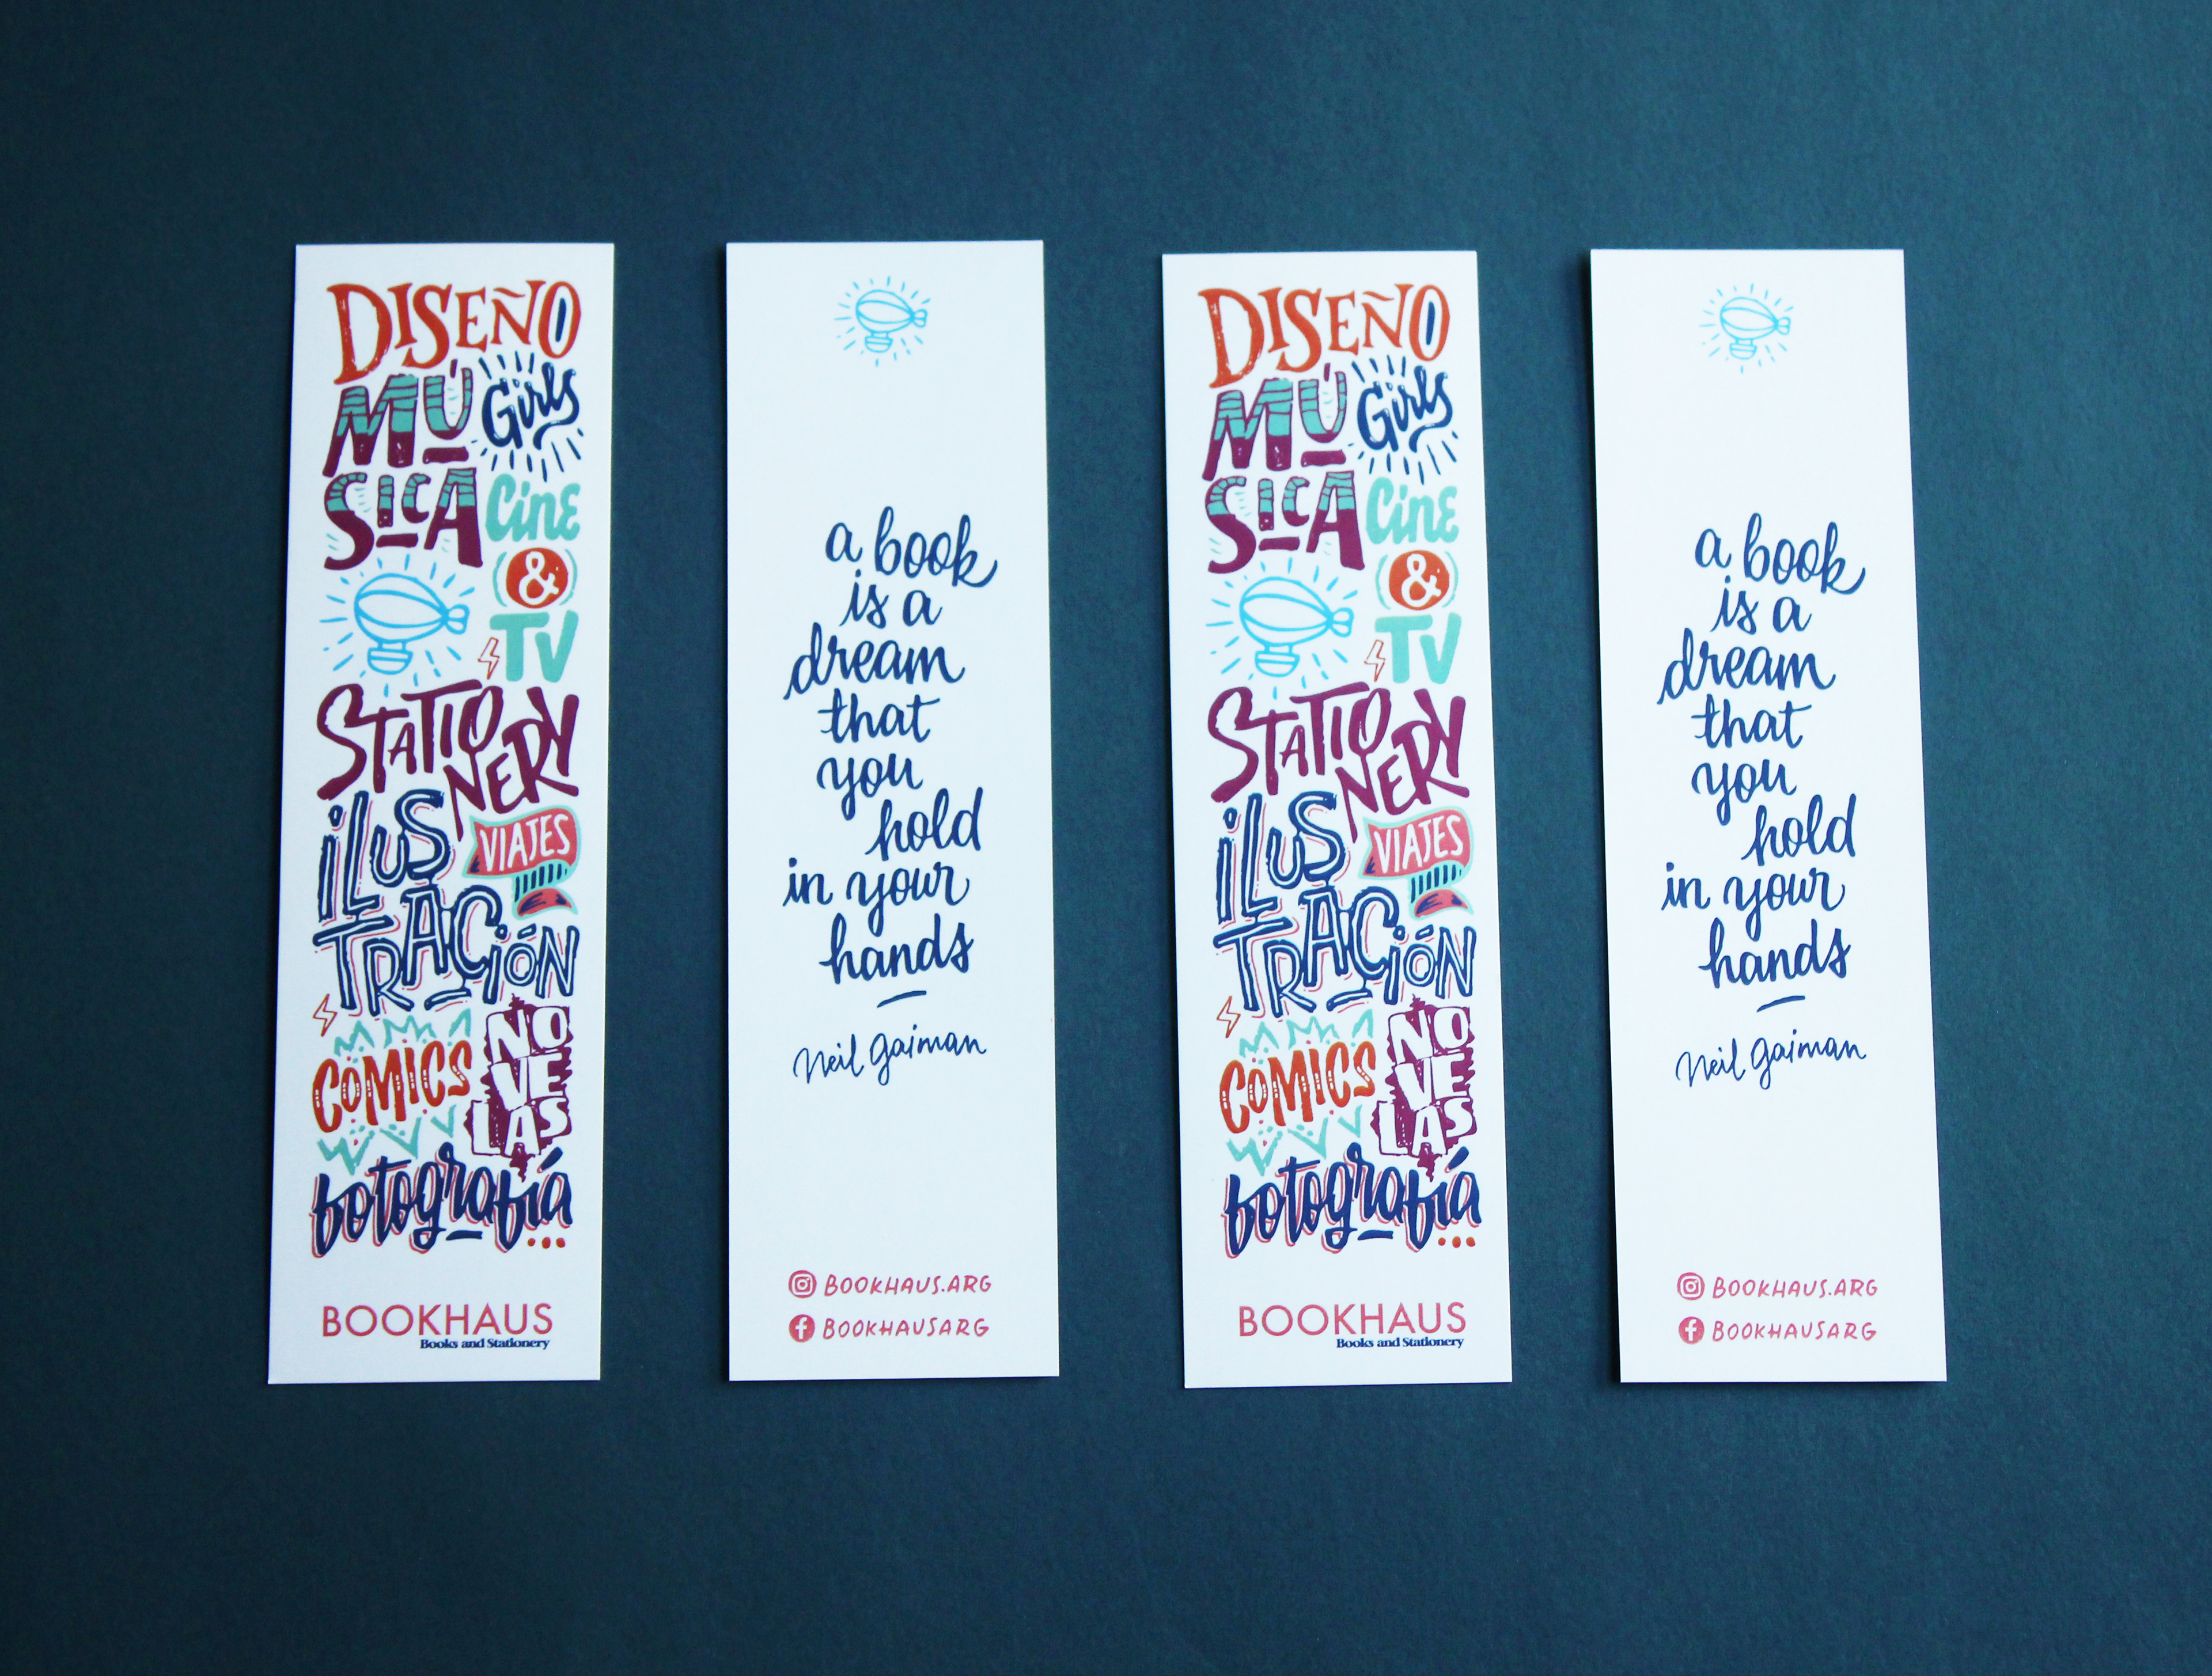 DISEÑO
MÚ
SICA
Girls
Cine
&
TV
STATIO
NERY
ILUS
TRACIÓN
VIAJES
COMICS
NO
VE
LAS
fotografía...
BOOKHAUS
Books and Stationery
a book
is a
dream
that
you
hold
in your
hands
Neil Gaiman
BOOKHAUS.ARG
BOOKHAUSARG
DISEÑO
MÚ
SICA
Girls
Cine
&
TV
STATIO
NERY
ILUS
TRACIÓN
VIAJES
COMICS
NO
VE
LAS
fotografía...
BOOKHAUS
Books and Stationery
a book
is a
dream
that
you
hold
in your
hands
Neil Gaiman
BOOKHAUS.ARG
BOOKHAUSARG